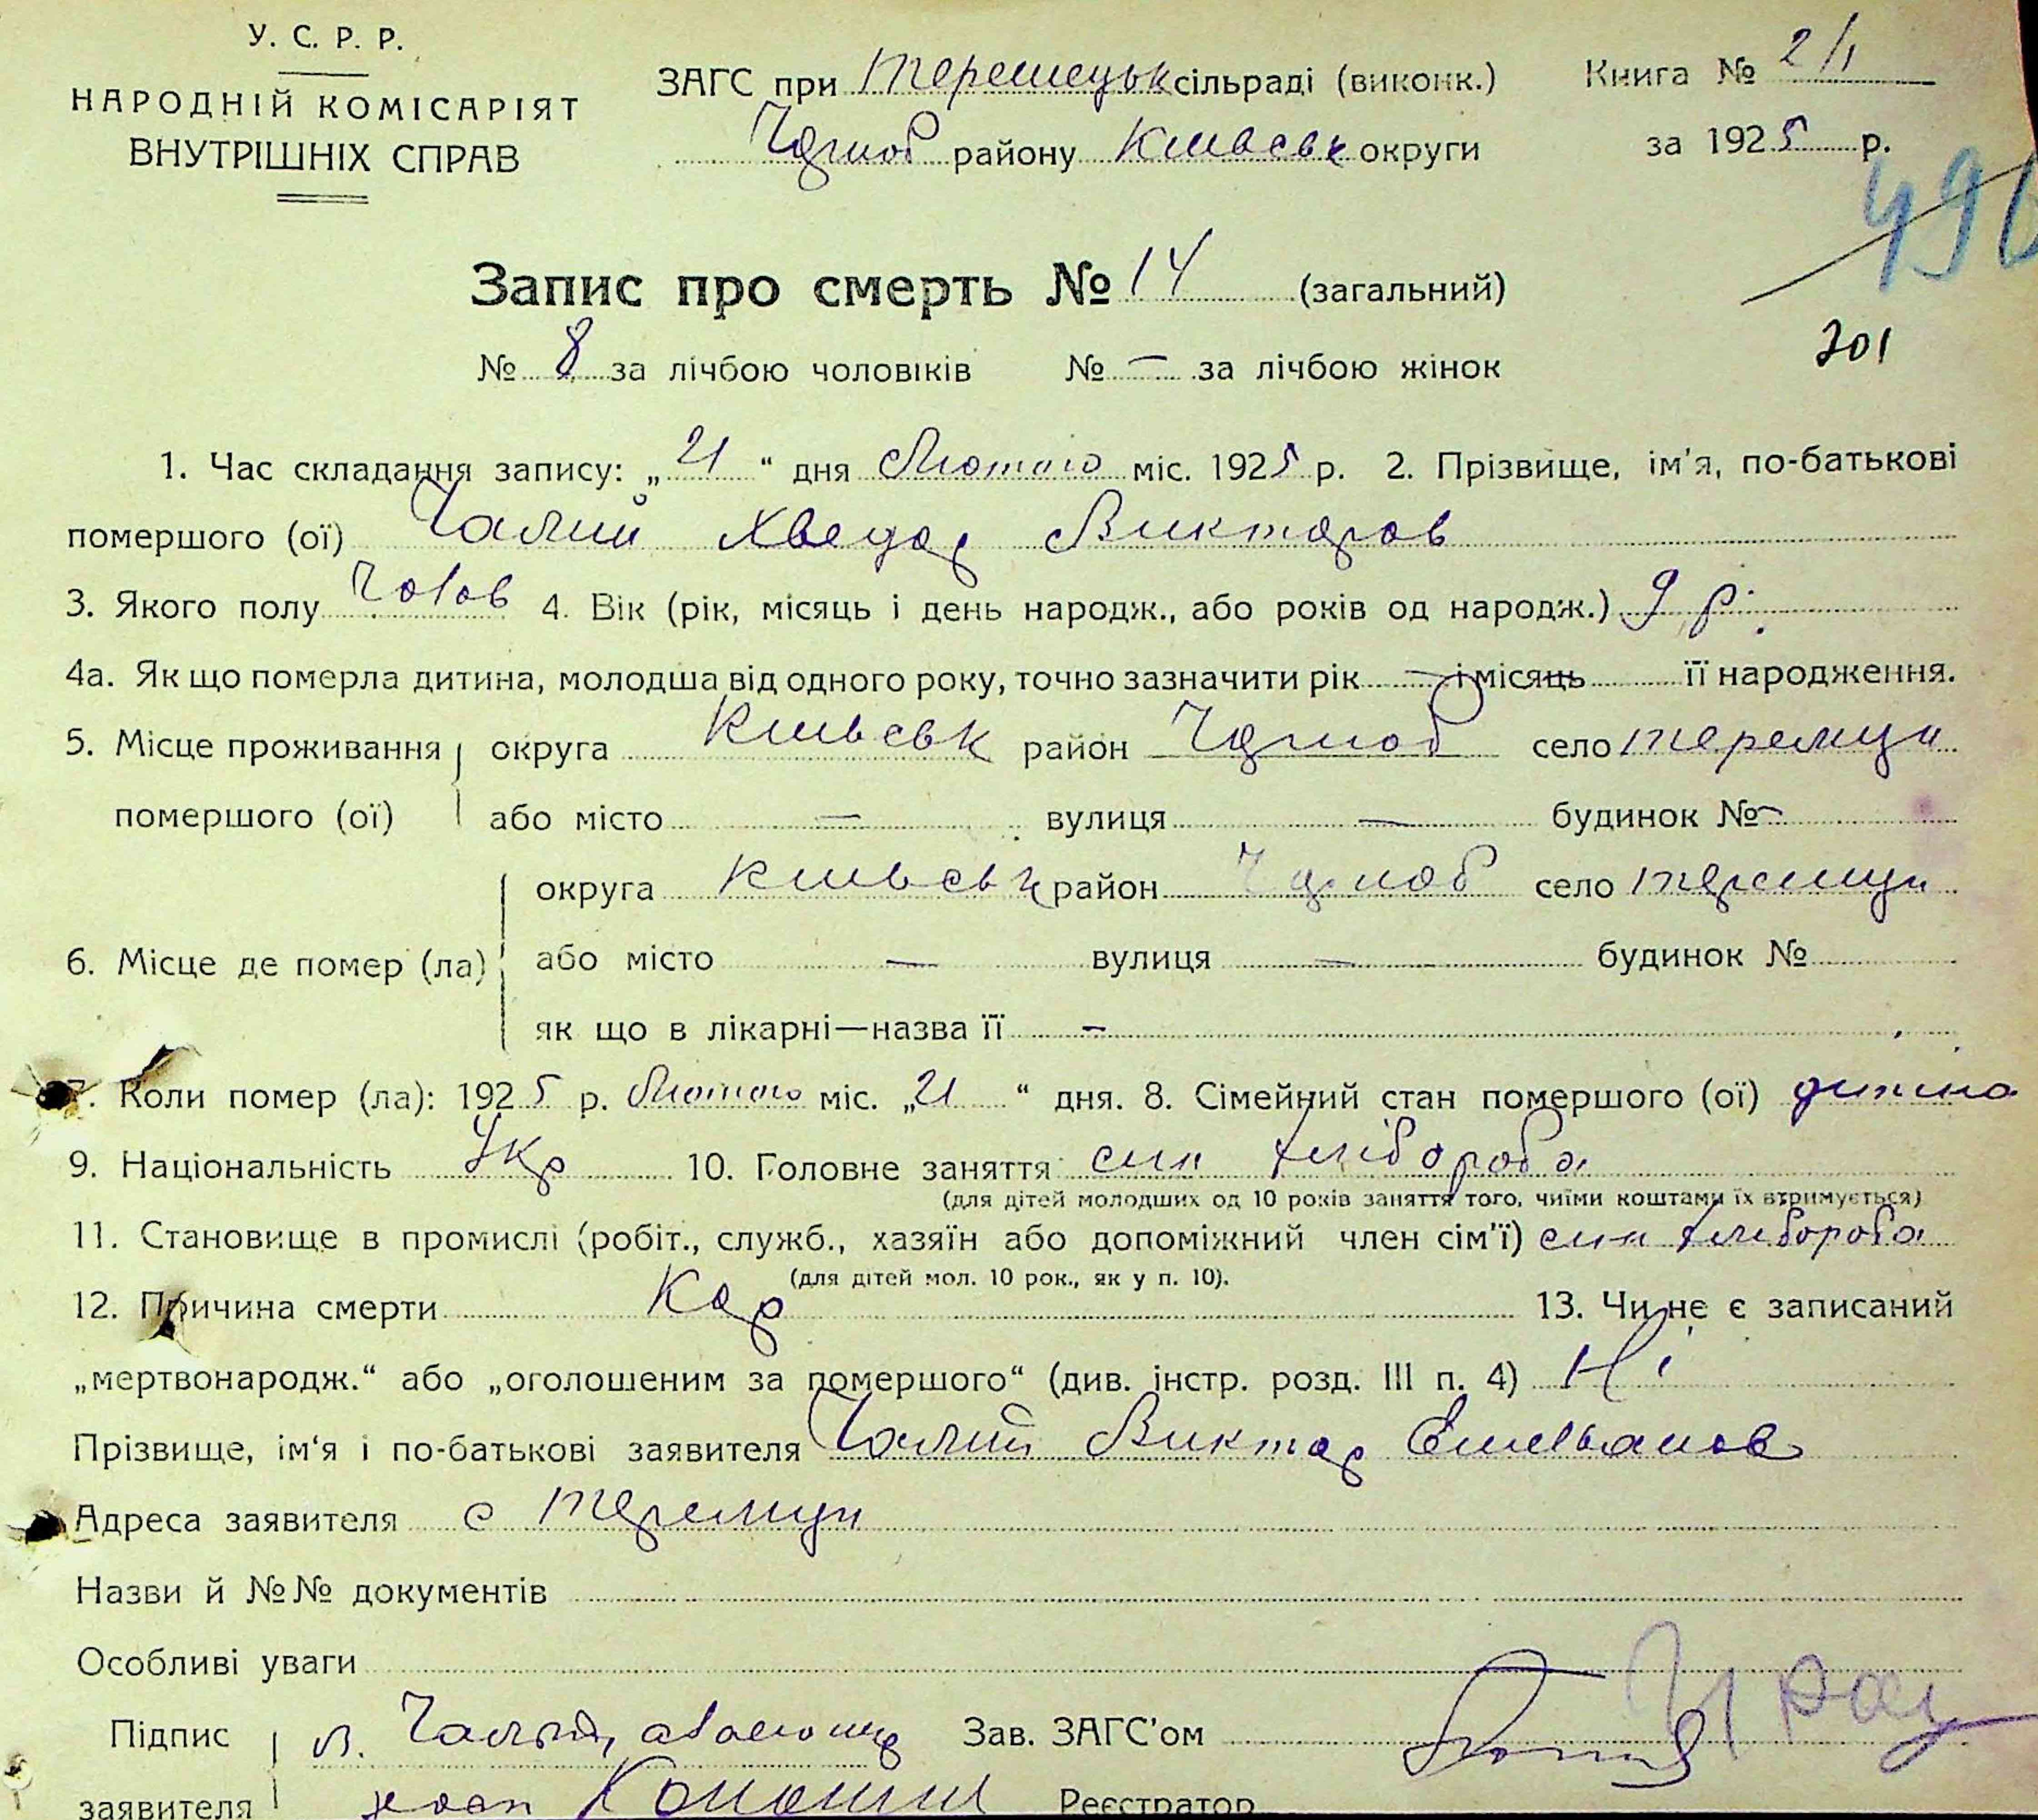 У. С. Р. Р.
НАРОДНІЙ КОМІСАРІЯТ
ВНУТРІШНІХ СПРАВ
ЗАГС при Теремецьк сільраді (виконк.)
Чорноб району Київськ округи
Книга № 2/1
за 1925 р.
496
Запис про смерть № 14 (загальний)
201
№ 8 за лічбою чоловіків № — за лічбою жінок
1. Час складання запису: „21“ дня Лютого міс. 1925 р. 2. Прізвище, ім'я, по-батькові
помершого (ої) Чалий Хведор Викторов
3. Якого полу Чолов 4. Вік (рік, місяць і день народж., або років од народж.) 9 р.
4а. Як що померла дитина, молодша від одного року, точно зазначити рік — і місяць її народження.
5. Місце проживання округа Київськ район Чорноб село Теремци
помершого (ої) або місто — вулиця — будинок № —
округа Київськ район Чорноб село Теремци
6. Місце де помер (ла) або місто — вулиця — будинок №
як що в лікарні—назва її —
7. Коли помер (ла): 1925 р. Лютого міс. „21“ дня. 8. Сімейний стан помершого (ої) дитина
9. Національність Укр 10. Головне заняття син хлібороба
(для дітей молодших од 10 років заняття того, чиїми коштами їх втримується)
11. Становище в промислі (робіт., служб., хазяїн або допоміжний член сім'ї) син хлібороба
(для дітей мол. 10 рок., як у п. 10).
12. Причина смерти Кор 13. Чи не є записаний
„мертвонародж.“ або „оголошеним за помершого“ (див. інстр. розд. III п. 4) Ні
Прізвище, ім'я і по-батькові заявителя Чалий Виктор Емельянов
Адреса заявителя с Теремци
Назви й №№ документів
Особливі уваги
Підпис В. Чалий, Зав. ЗАГС'ом
заявителя Реєстратор